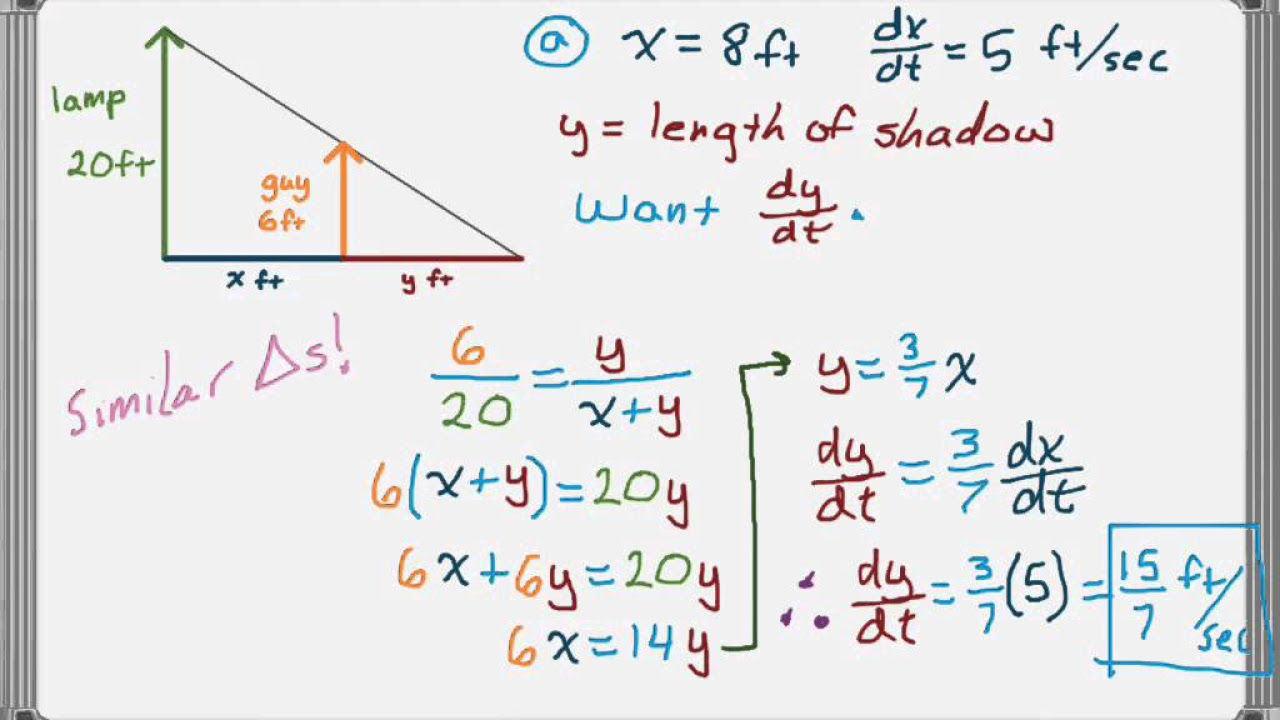 lamp
20ft
guy
6ft
x ft
y ft
a x = 8ft dx/dt = 5 ft/sec
y = length of shadow
want dy/dt .
Similar Δs!
6/20 = y/x+y
6(x+y) = 20y
6x+6y = 20y
6x = 14y
y = 3/7 x
dy/dt = 3/7 dx/dt
∴ dy/dt = 3/7 (5) = 15/7 ft/sec